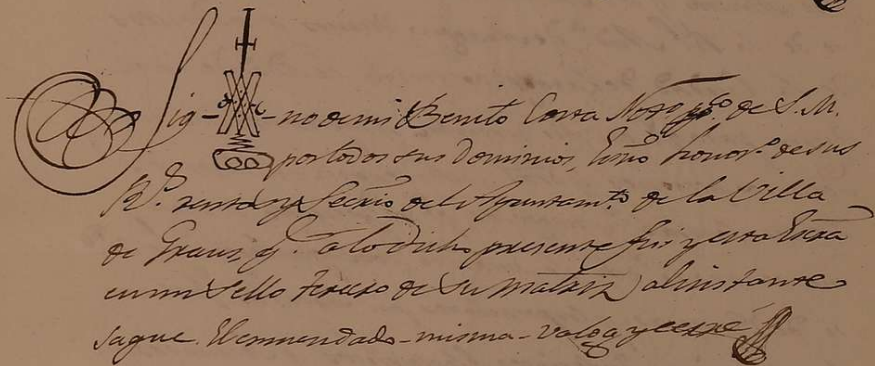 Sig-no de mi Benito Costa Noto pp.co de S. M.
por todos sus Dominios, Esno honor.o de sus
R.s rentas y Secrio del Ayuntam.to de la Villa
de Graus q.e a lo dicho presente fui y esta Escra
en un sello tercero de su matriz al instante
saque. El enmendado-misma-valga y cerré